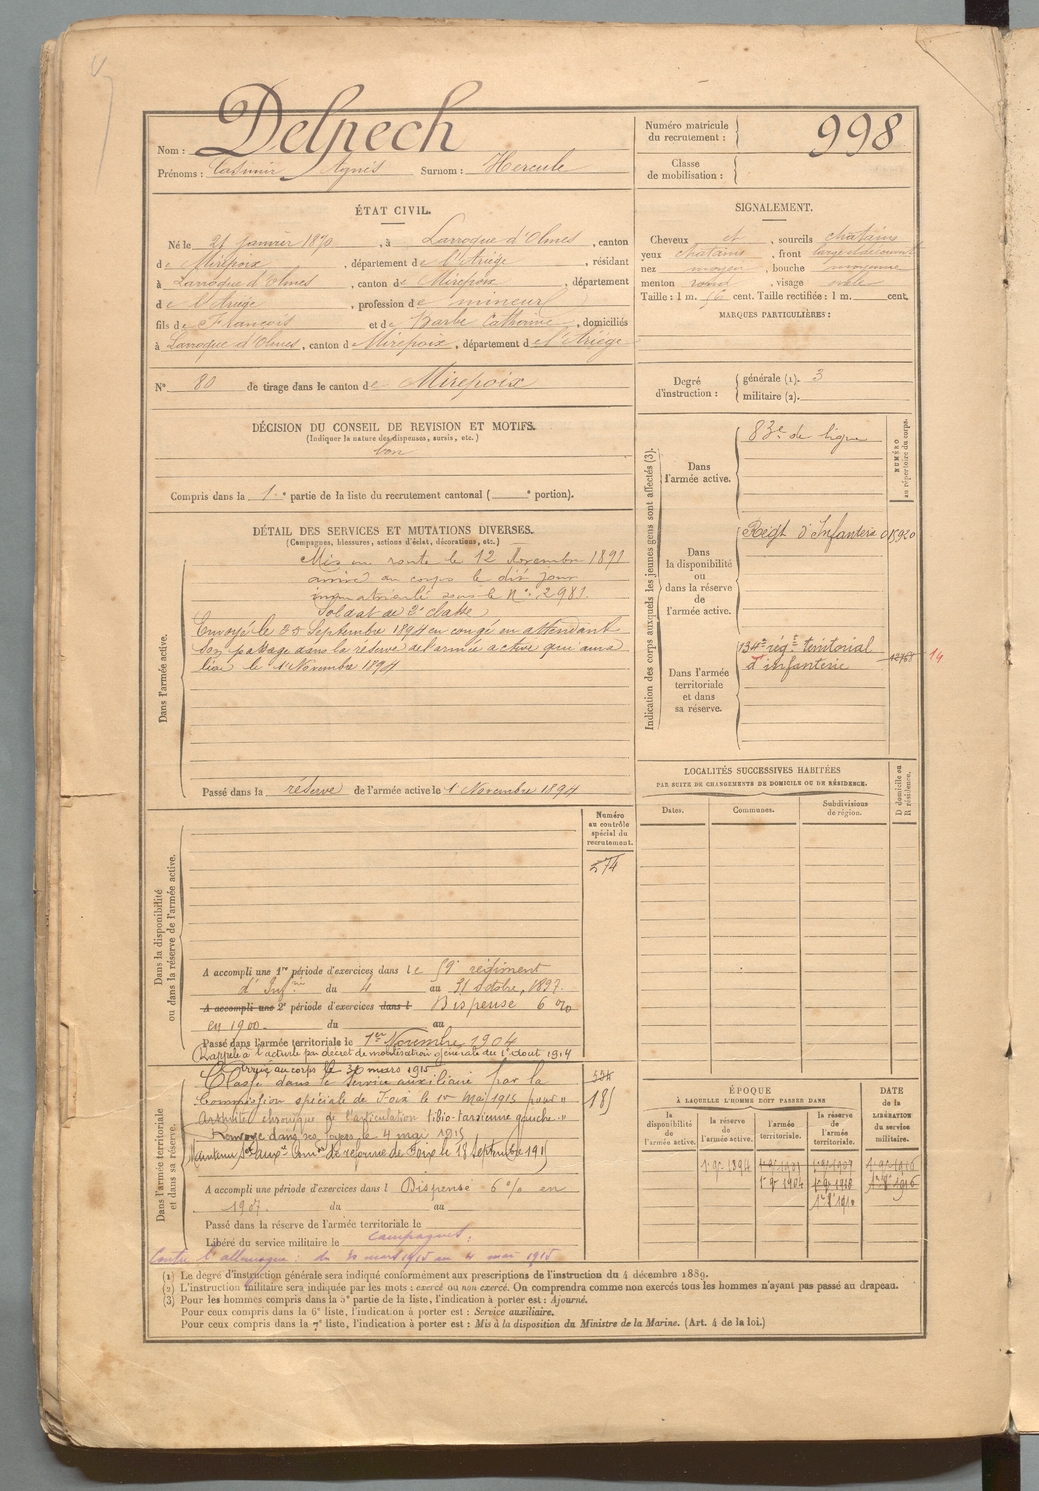 Nom : Delpech
Prénoms : Casimir Agnès Surnom : Hercule
Numéro matricule du recrutement : 998
Classe de mobilisation :
ÉTAT CIVIL.
Né le 21 janvier 1870, à Larroque d'Olmes, canton
de Mirepoix, département de l'Ariège, résidant
à Larroque d'Olmes, canton de Mirepoix, département
de l'Ariège, profession de mineur
fils de François et de Barbe Catherine, domiciliés
à Larroque d'Olmes, canton de Mirepoix, département de l'Ariège
N° 80 de tirage dans le canton de Mirepoix
SIGNALEMENT.
Cheveux et, sourcils chatains
yeux chatains, front large et découvert
nez moyen, bouche moyenne
menton rond, visage ovale
Taille : 1 m. cent. Taille rectifiée : 1 m. cent.
MARQUES PARTICULIÈRES :
Degré d'instruction : générale (1). 3
militaire (2).
DÉCISION DU CONSEIL DE REVISION ET MOTIFS.
(Indiquer la nature des dispenses, sursis, etc.)
bon
Compris dans la 1e partie de la liste du recrutement cantonal ( e portion).
DÉTAIL DES SERVICES ET MUTATIONS DIVERSES.
(Campagnes, blessures, actions d'éclat, décorations, etc.)
Dans l'armée active.
Mis en route le 12 Novembre 1891
arrivé au corps le dit jour
immatriculé sous le N° 2981.
Soldat de 2e classe
Envoyé le 25 Septembre 1894 en congé en attendant
son passage dans la réserve de l'armée active qui aura
lieu le 1 Novembre 1894
Passé dans la réserve de l'armée active le 1 Novembre 1894
Indication des corps auxquels les jeunes gens sont affectés (3).
NUMÉRO au répertoire du corps.
Dans l'armée active.
83e de ligne
Dans la disponibilité ou dans la réserve de l'armée active.
Régt d'Infanterie 015920
Dans l'armée territoriale et dans sa réserve.
134e régt territorial
d'infanterie
14
LOCALITÉS SUCCESSIVES HABITÉES
PAR SUITE DE CHANGEMENTS DE DOMICILE OU DE RÉSIDENCE.
Dates. Communes. Subdivisions de région. D domicile ou R résidence.
Dans la disponibilité ou dans la réserve de l'armée active.
Numéro au contrôle spécial du recrutement.
574
A accompli une 1re période d'exercices dans le 59e régiment
d'Infrie du 4 au 31 octobre 1897.
A accompli une 2e période d'exercices dans l Dispense 6 %
en 1900. du au
Passé dans l'armée territoriale le 1er Novembre 1904
Rappelé à l'activité par décret de mobilisation générale du 1 août 1914
Dans l'armée territoriale et dans sa réserve.
Arrivé au corps le 30 mars 1915
Classé dans le service auxiliaire par la
Commission spéciale de Foix le 1er Mai 1915 pour "
Arthrite chronique de l'articulation tibio-tarsienne gauche "
Renvoyé dans ses foyers le 4 mai 1915
Maintenu Ser auxre Comon de réforme de Foix le 18 septembre 1915
185
A accompli une période d'exercices dans l Dispensé 6 % en
1907. du au
Passé dans la réserve de l'armée territoriale le
Libéré du service militaire le
Campagnes :
Contre l'allemagne : du 30 mars 1915 au 4 mai 1915
ÉPOQUE
À LAQUELLE L'HOMME DOIT PASSER DANS
la disponibilité de l'armée active. la réserve de l'armée active. l'armée territoriale. la réserve de l'armée territoriale.
DATE de la LIBÉRATION du service militaire.
(1) Le degré d'instruction générale sera indiqué conformément aux prescriptions de l'instruction du 4 décembre 1889.
(2) L'instruction militaire sera indiquée par les mots : exercé ou non exercé. On comprendra comme non exercés tous les hommes n'ayant pas passé au drapeau.
(3) Pour les hommes compris dans la 5e partie de la liste, l'indication à porter est : Ajourné.
Pour ceux compris dans la 6e liste, l'indication à porter est : Service auxiliaire.
Pour ceux compris dans la 7e liste, l'indication à porter est : Mis à la disposition du Ministre de la Marine. (Art. 4 de la loi.)